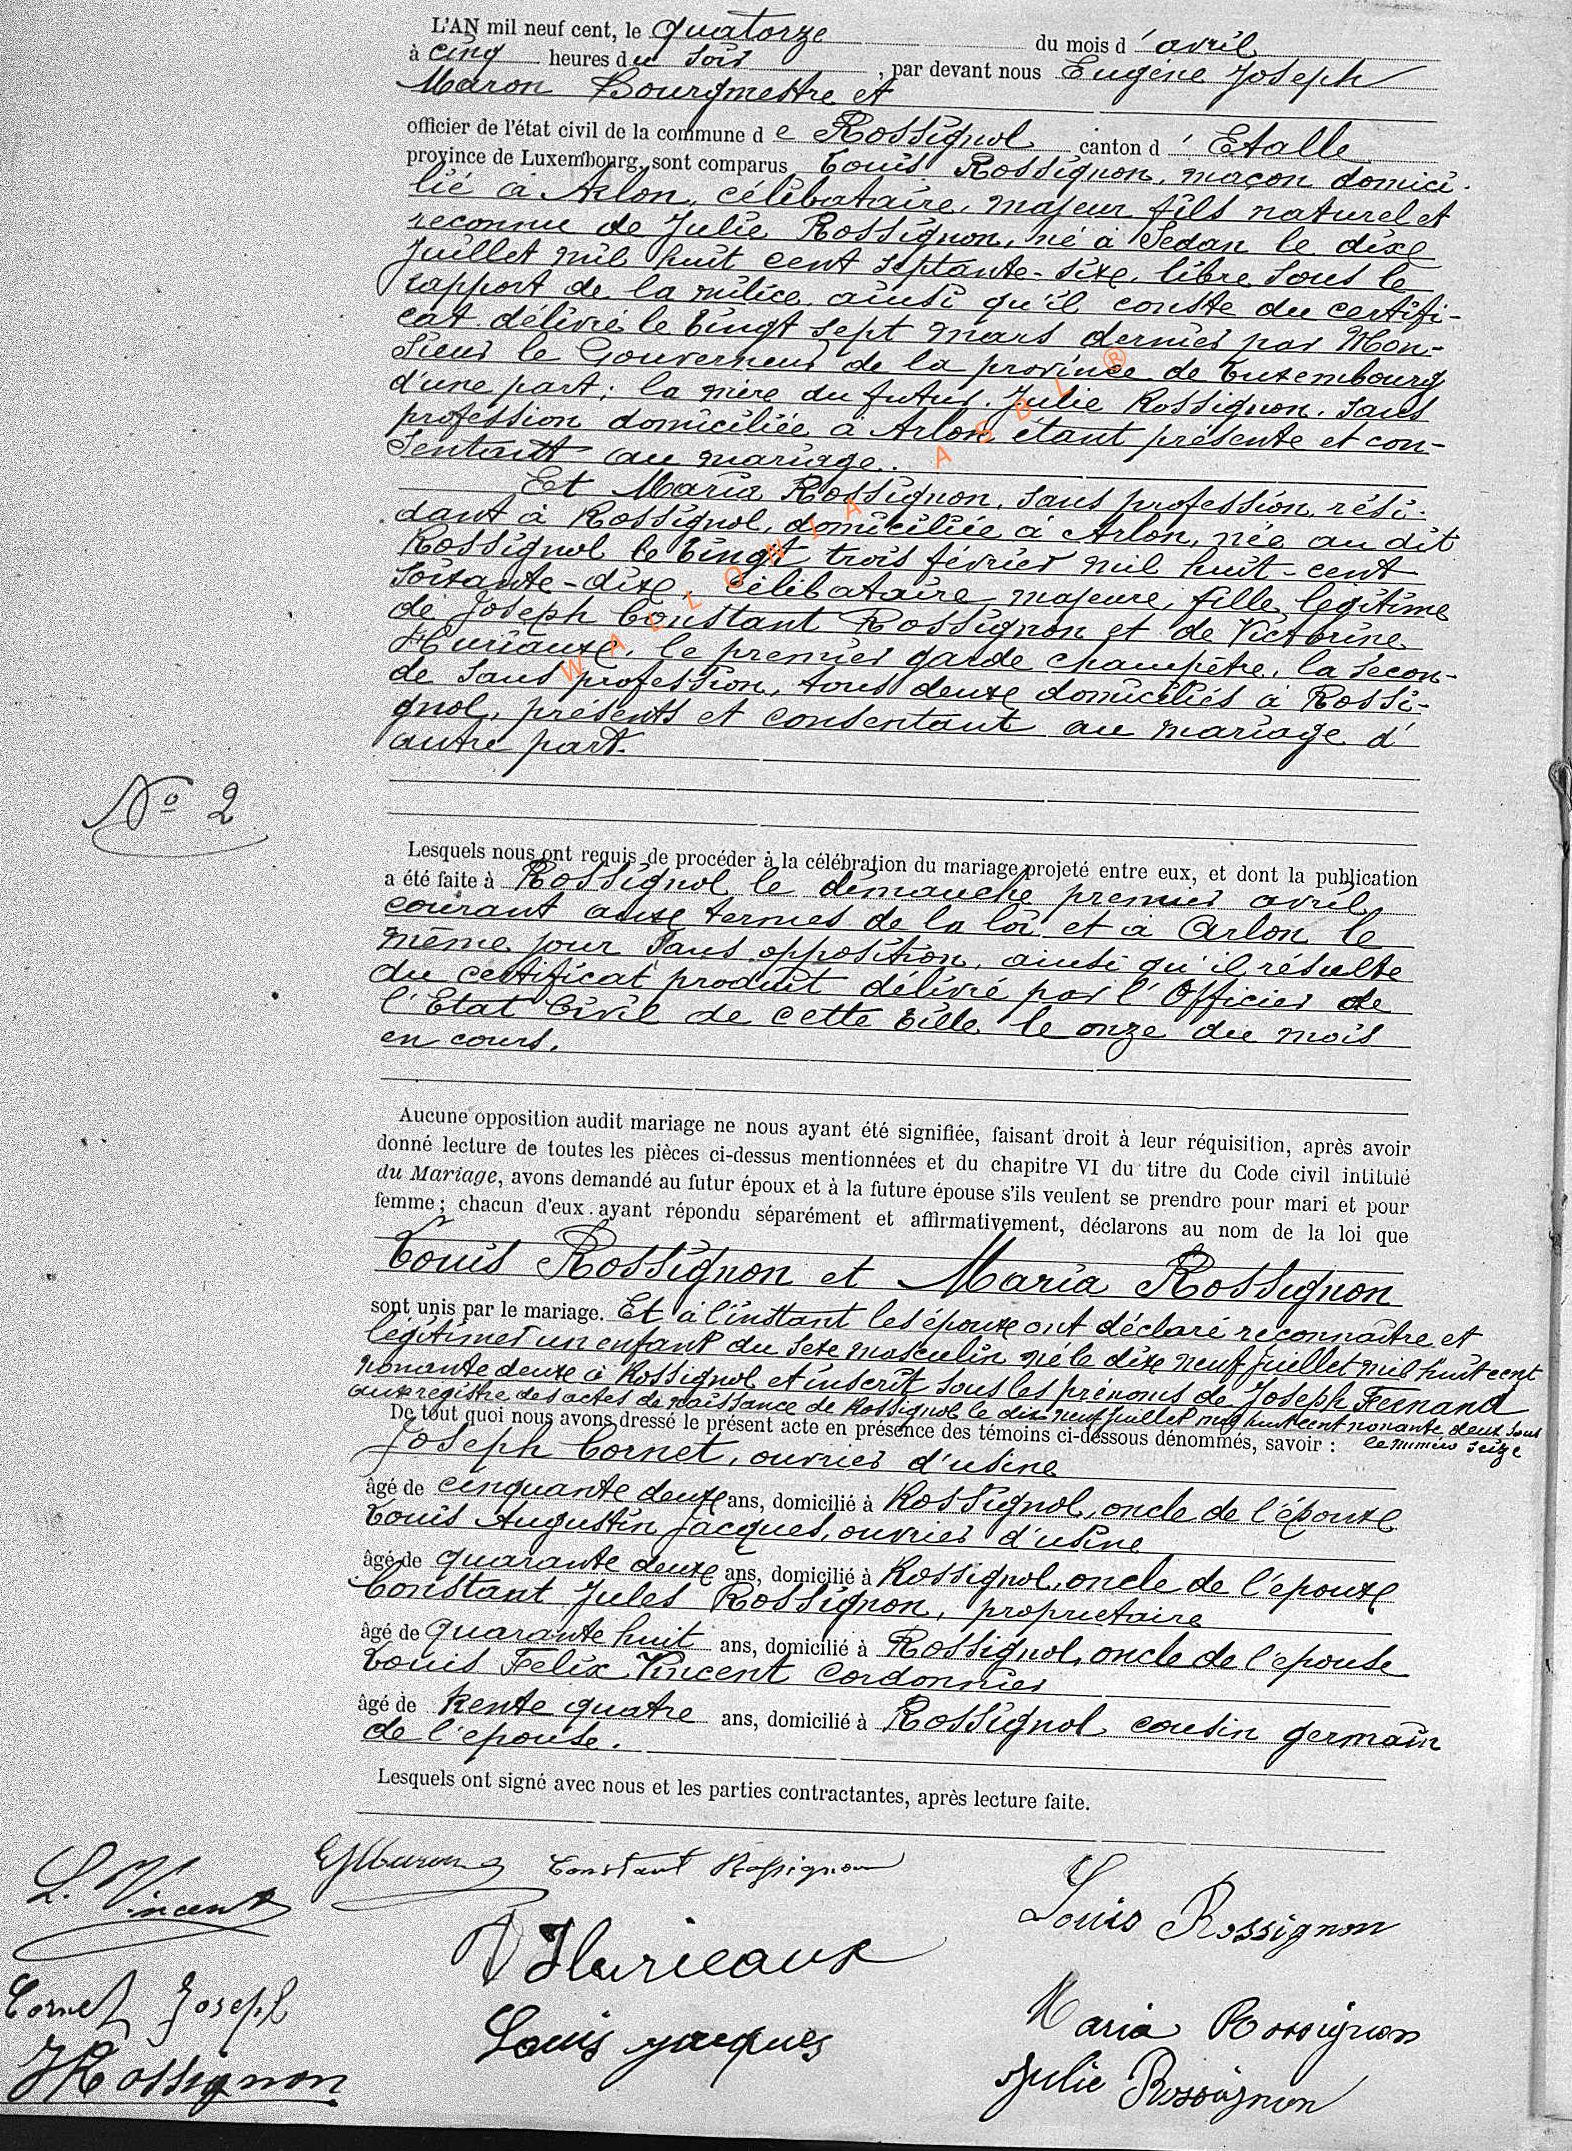 L'AN mil neuf cent, le quatorze du mois d'avril
à cinq heures du soir, par devant nous Eugène Joseph
Maron Bourgmestre et
officier de l'état civil de la commune de Rossignol canton d'Etalle
province de Luxembourg, sont comparus Louis Rossignon, maçon domici-
lié à Arlon, célibataire, majeur fils naturel et
reconnu de Julie Rossignon, né à Sedan le dix
Juillet mil huit cent septante-six, libre sous le
rapport de la milice, ainsi qu'il conste du certifi-
cat délivré le vingt sept mars dernier par Mon-
sieur le Gouverneur de la province de Luxembourg
d'une part; la mère du futur, Julie Rossignon, sans
profession domiciliée à Arlon étant présente et con-
sentant au mariage.
Et Maria Rossignon, sans profession, rési-
dant à Rossignol, domiciliée à Arlon, née au dit
Rossignol le vingt trois février mil huit-cent
soixante-dix, célibataire majeure, fille légitime
de Joseph Constant Rossignon et de Victorine
Hurieaux, le premier garde champêtre, la secon-
de sans profession, tous deux domiciliés à Rossi-
gnol, présents et consentant au mariage d'
autre part.
No 2
Lesquels nous ont requis de procéder à la célébration du mariage projeté entre eux, et dont la publication
a été faite à Rossignol le dimanche premier avril
courant aux termes de la loi et à Arlon le
même jour sans opposition, ainsi qu'il résulte
du certificat produit délivré par l'Officier de
l'Etat Civil de cette ville le onze du mois
en cours.
Aucune opposition audit mariage ne nous ayant été signifiée, faisant droit à leur réquisition, après avoir
donné lecture de toutes les pièces ci-dessus mentionnées et du chapitre VI du titre du Code civil intitulé
du Mariage, avons demandé au futur époux et à la future épouse s'ils veulent se prendre pour mari et pour
femme; chacun d'eux ayant répondu séparément et affirmativement, déclarons au nom de la loi que
Louis Rossignon et Maria Rossignon
sont unis par le mariage. Et à l'instant les époux ont déclaré reconnaître et
légitimer un enfant du sexe masculin né le dix neuf juillet mil huit cent
nonante deux à Rossignol et inscrit sous les prénoms de Joseph Fernand
aux registre des actes de naissance de Rossignol le dix neuf juillet mil huit cent nonante deux sous
le numéro seize
De tout quoi nous avons dressé le présent acte en présence des témoins ci-dessous dénommés, savoir :
Joseph Cornet, ouvrier d'usine
âgé de cinquante deux ans, domicilié à Rossignol, oncle de l'époux
Louis Augustin Jacques, ouvrier d'usine
âgé de quarante deux ans, domicilié à Rossignol, oncle de l'époux
Constant Jules Rossignon, propriétaire
âgé de quarante huit ans, domicilié à Rossignol, oncle de l'épouse
Louis Felix Vincent Cordonnier
âgé de trente quatre ans, domicilié à Rossignol cousin germain
de l'épouse.
Lesquels ont signé avec nous et les parties contractantes, après lecture faite.
L. Vincent EJMaron Constant Rossignon
Louis Rossignon
V Hurieaux
Cornet Joseph
Louis jacques
Maria Rossignon
JRossignon
Julie Rossignon
WALLONIA ASBL ®